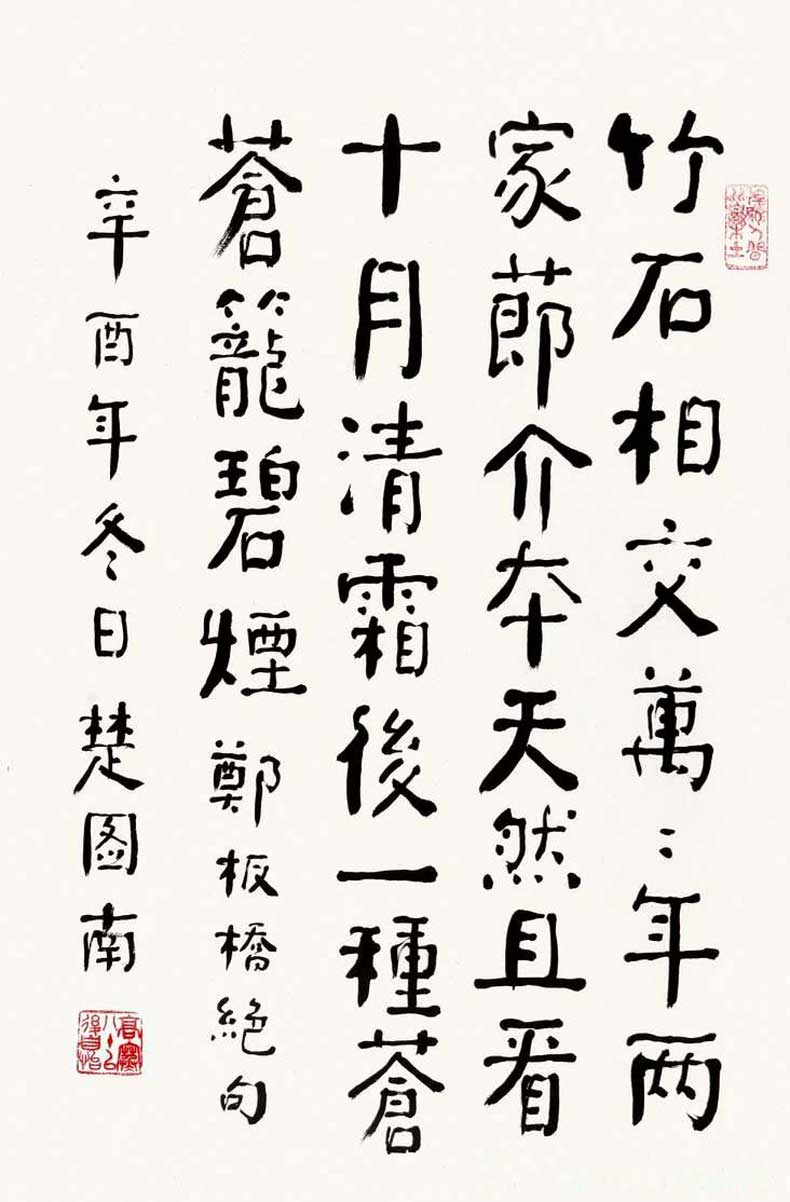 竹石相交萬〻年两
家節介夲天然且看
十月清霜後一種蒼
蒼籠碧煙 鄭板橋絕句
辛酉年冬日楚图南